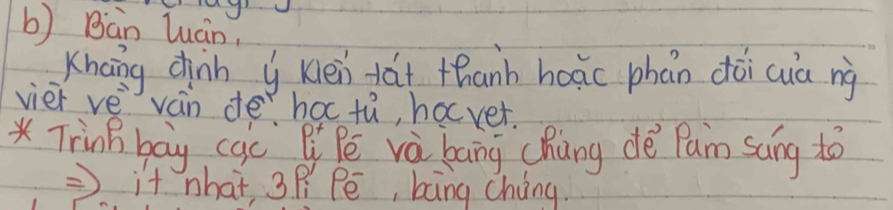 b) Bàn luận,
Khẳng định ý kiến tát thành hoặc phản đối của ng̀
viết về vấn đề học tủ, học vẹt.
* Trình bày các lí lẽ và bằng chứng để làm sáng tỏ
=> ít nhất, 3 lí lẽ, bằng chứng.